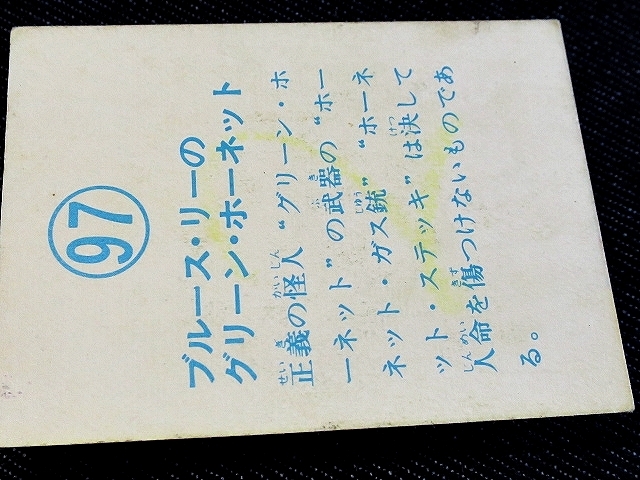 97
ブルース・リーの
グリーン・ホーネット
正義の怪人“グリーン・ホ
ーネット”の武器の“ホー
ネット・ガス銃”“ホーネ
ット・ステッキ”は決して
人命を傷つけないものであ
る。